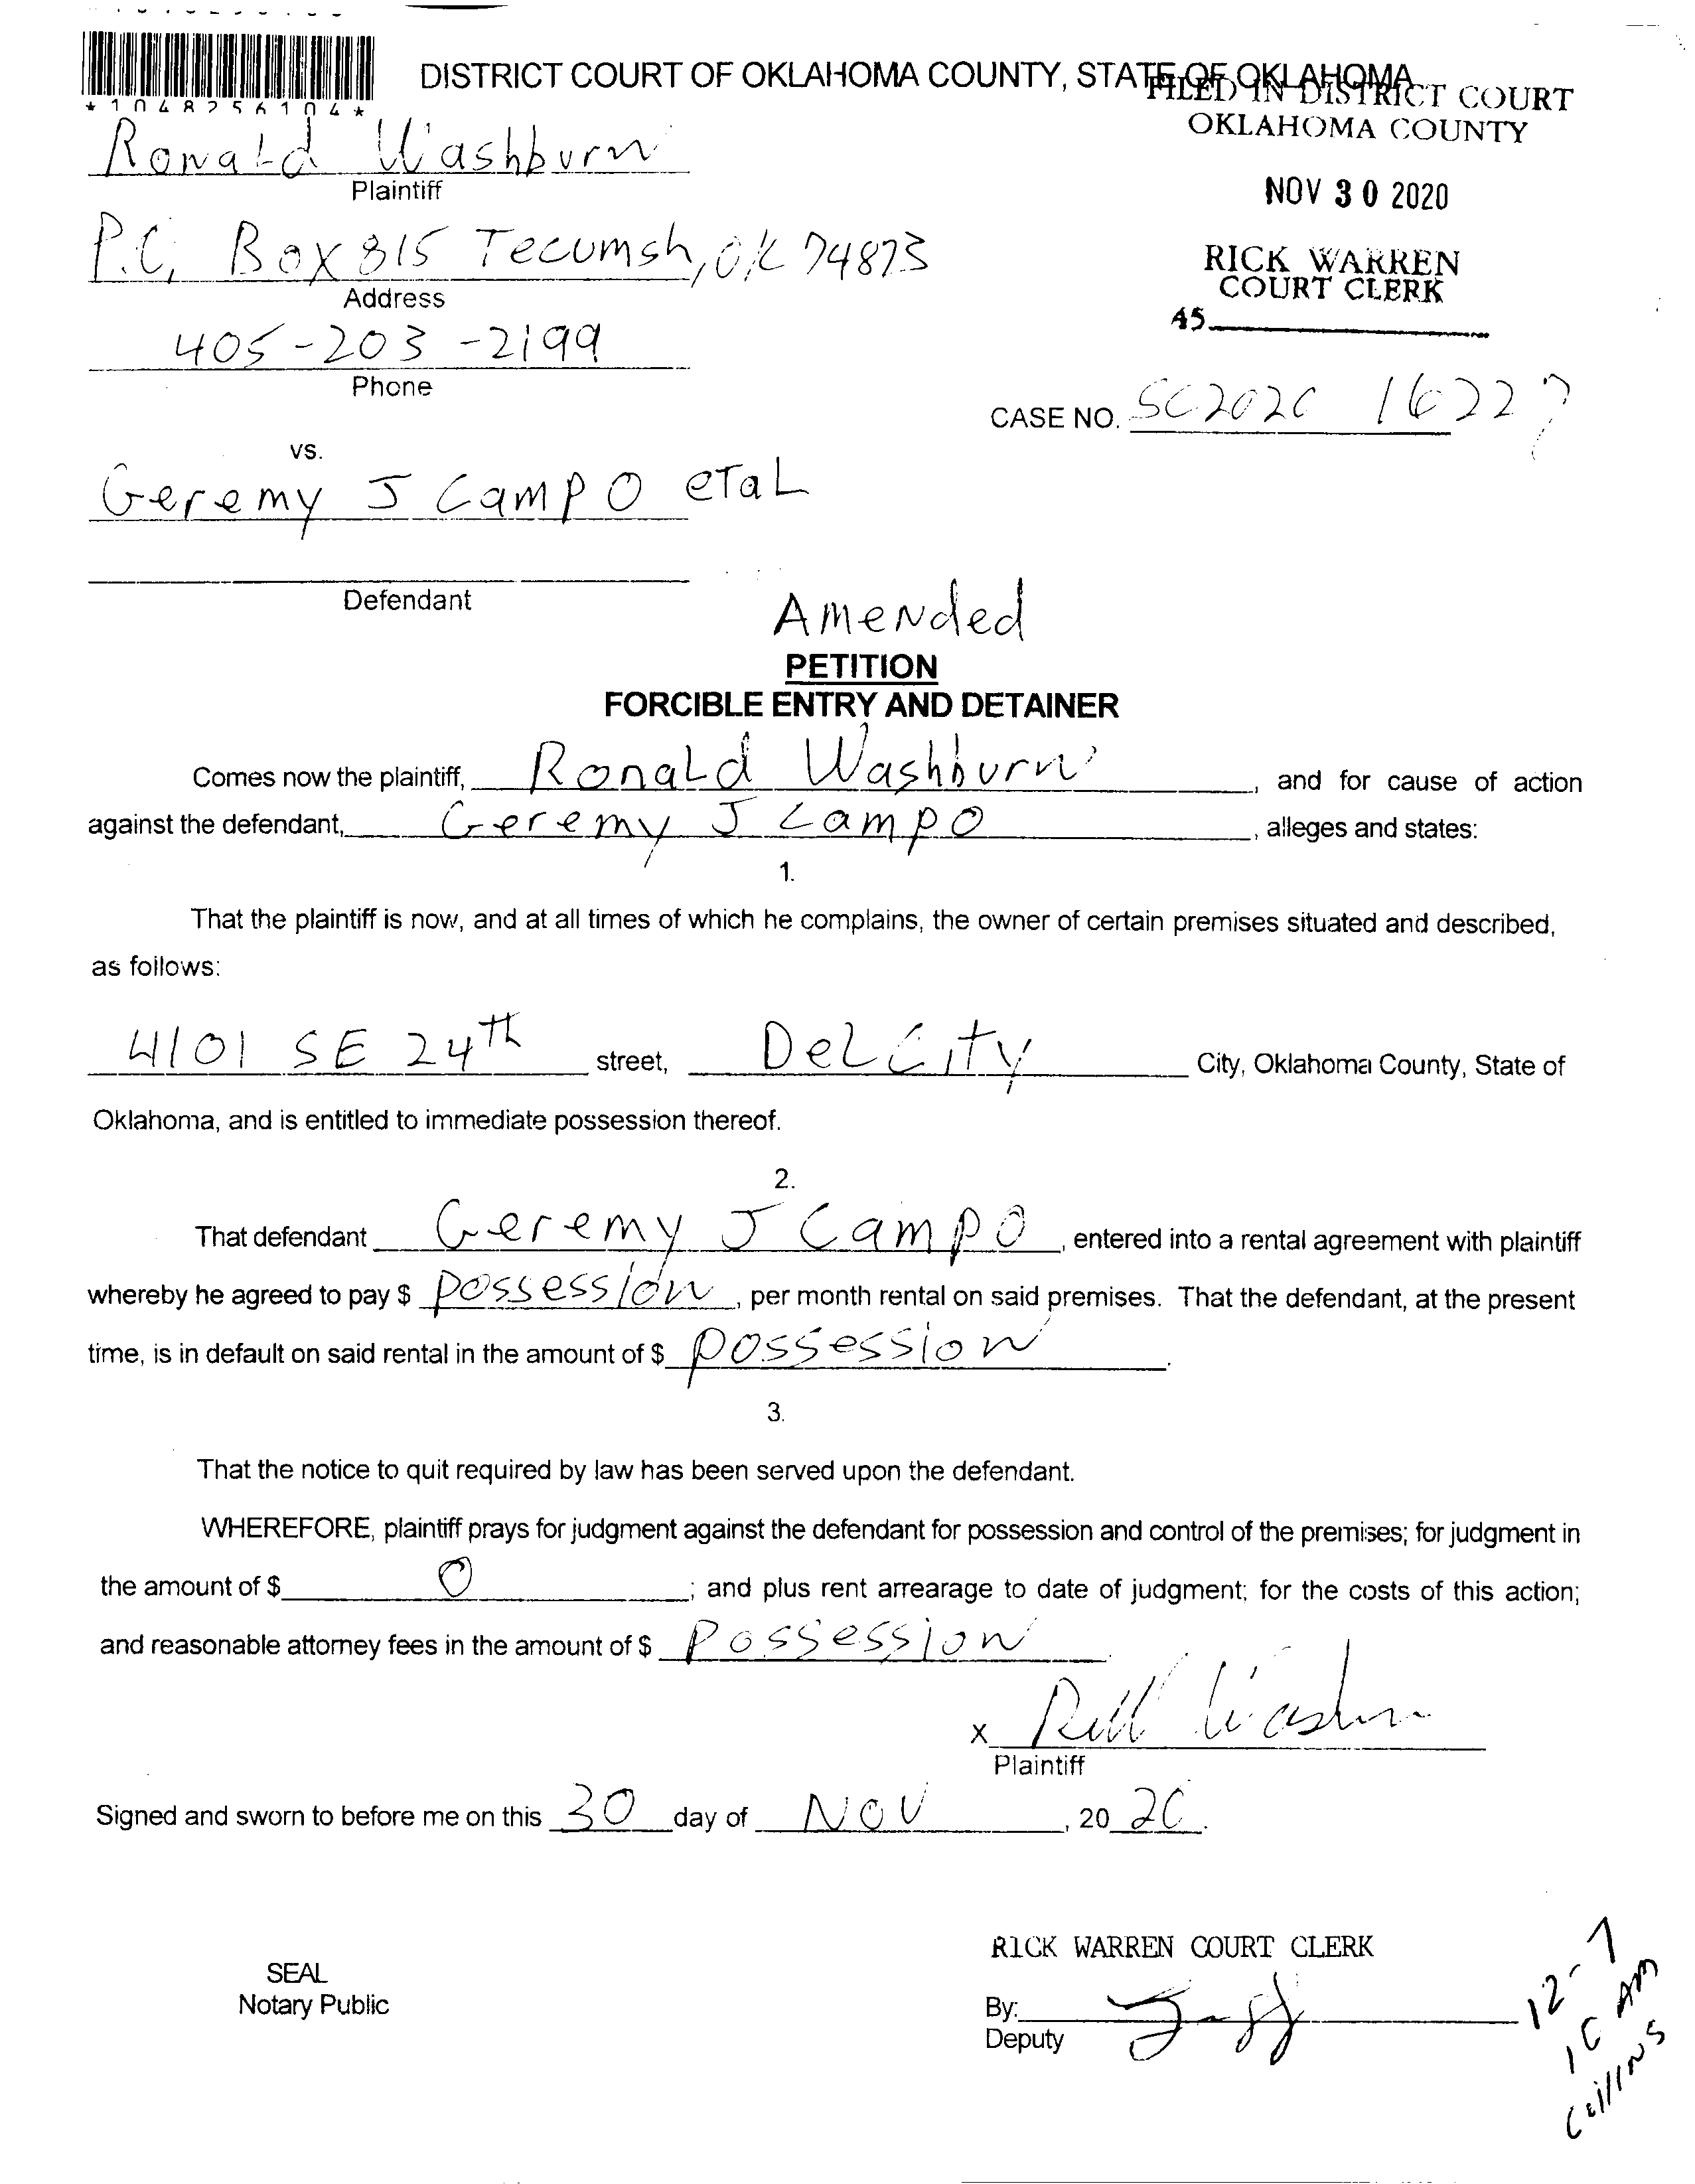 DISTRICT COURT OF OKLAHOMA COUNTY, STATE OF OKLAHOMA
*1048256104*
FILED IN DISTRICT COURT
OKLAHOMA COUNTY
NOV 30 2020
RICK WARREN
COURT CLERK
45
Ronald Washburn
Plaintiff
P.O. Box 815 Tecumsh, OK 74873
Address
405-203-2199
Phone
CASE NO. SC2020 16227
vs.
Geremy J Campo etal
Defendant
Amended
PETITION
FORCIBLE ENTRY AND DETAINER
Comes now the plaintiff, Ronald Washburn, and for cause of action
against the defendant, Geremy J Campo, alleges and states:
1.
That the plaintiff is now, and at all times of which he complains, the owner of certain premises situated and described,
as follows:
4101 SE 24th street, Del City City, Oklahoma County, State of
Oklahoma, and is entitled to immediate possession thereof.
2.
That defendant Geremy J Campo, entered into a rental agreement with plaintiff
whereby he agreed to pay $ possession, per month rental on said premises. That the defendant, at the present
time, is in default on said rental in the amount of $ possession.
3.
That the notice to quit required by law has been served upon the defendant.
WHEREFORE, plaintiff prays for judgment against the defendant for possession and control of the premises; for judgment in
the amount of $ 0; and plus rent arrearage to date of judgment; for the costs of this action;
and reasonable attorney fees in the amount of $ Possession.
X
Plaintiff
Signed and sworn to before me on this 30 day of NOV, 20 20.
RICK WARREN COURT CLERK
SEAL
Notary Public
By:
Deputy
12-7
10 AM
Collins